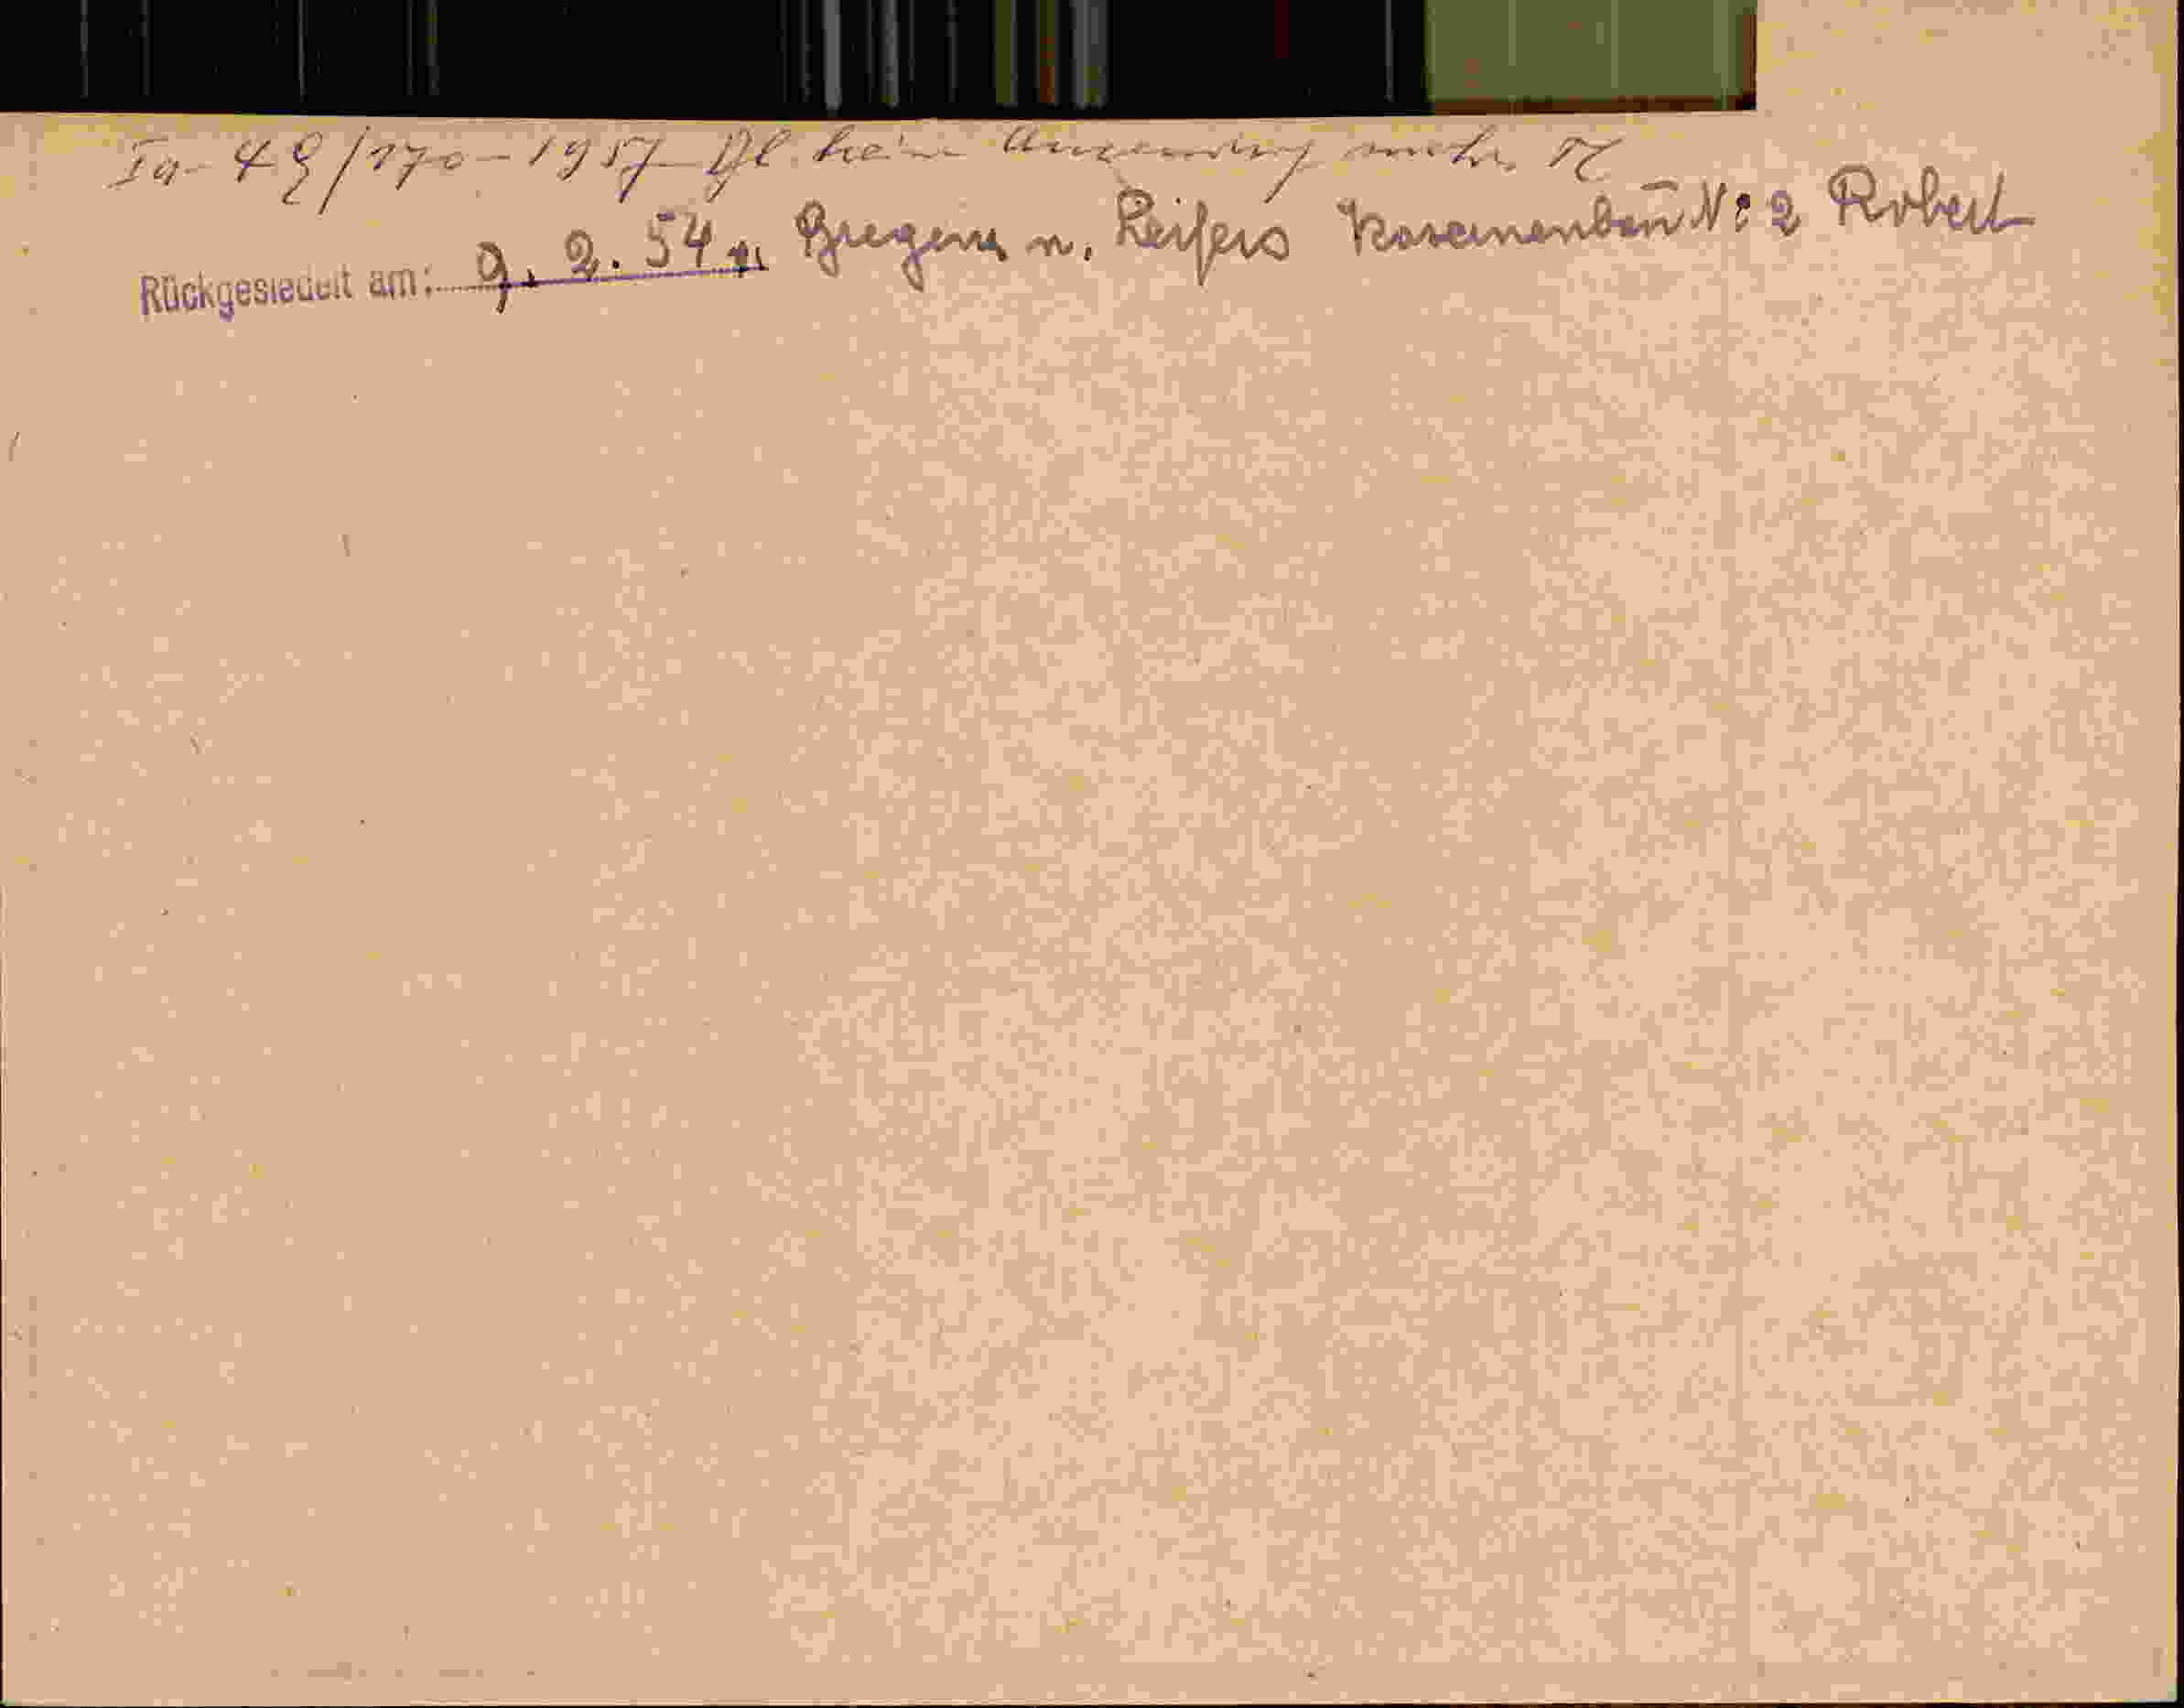 Ia-49/170-1957 Dfl. keine Anwendung mehr
Rückgesiedelt am: 9. 2. 54 v. Bregenz n. Leifers Kasernenbau No 2 Robert